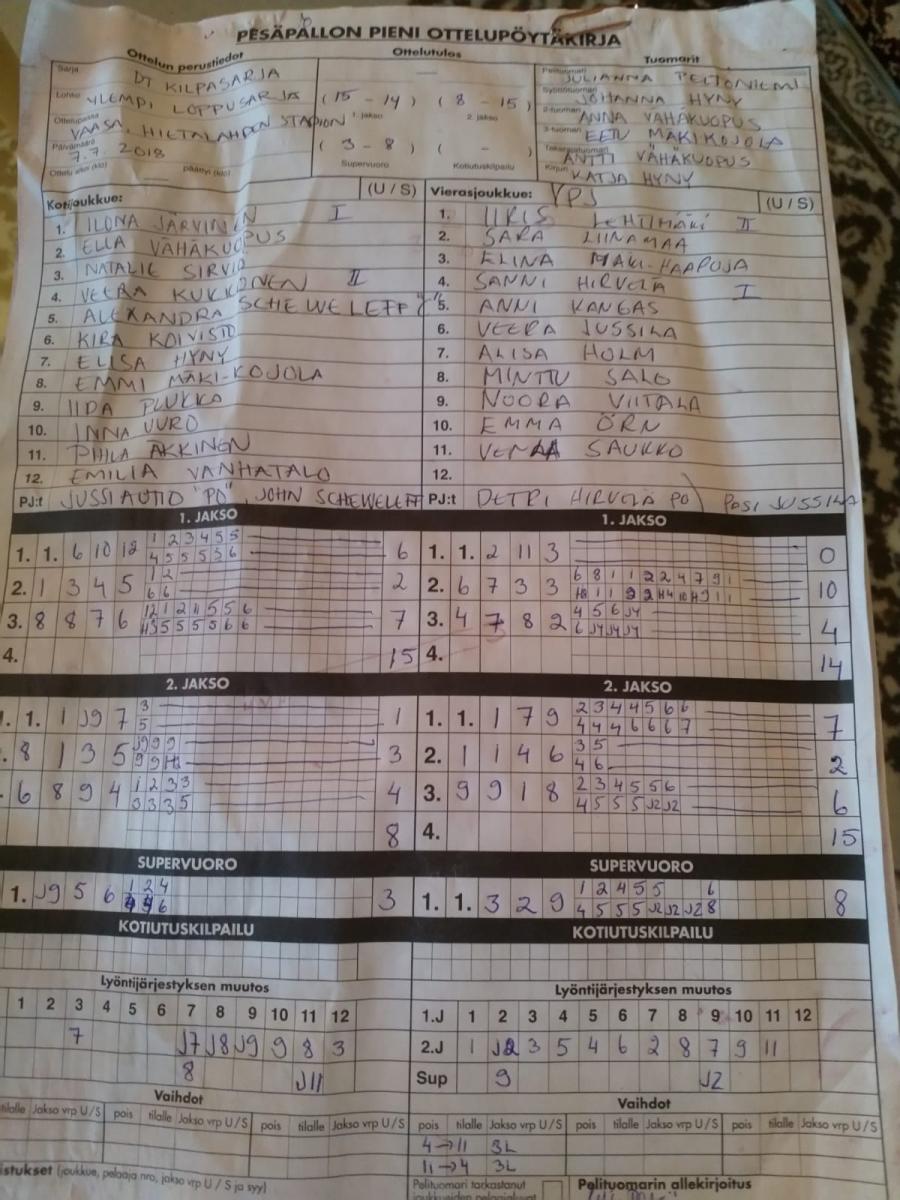 PESÄPALLON PIENI OTTELUPÖYTÄKIRJA
Ottelun perustiedot
Ottelutulos
Tuomarit
Sarja DT KILPASARJA
Lohko YLEMPI LOPPUSARJA
Ottelupaikka VAASA, HIETALAHDEN STADION
Päivämäärä 7.7. 2018
Ottelu alkoi (klo) päättyi (klo)
(15 - 14) (8 - 15)
1. jakso 2. jakso
(3 - 8) ( - )
Supervuoro Kotiutuskilpailu
Pelituomari JULIANNA PELTONIEMI
Syöttötuomari JOHANNA HYNY
2-tuomari ANNA VÄHÄKUOPUS
3-tuomari EETU MÄKIKOJOLA
Takarajatuomari ANTTI VÄHÄKUOPUS
Kirjuri KATJA HYNY
Kotijoukkue: (U / S)
1. ILONA JÄRVINEN I
2. ELLA VÄHÄKUOPUS
3. NATALIE SIRVIÖ
4. VEERA KUKKONEN II
5. ALEXANDRA SCHEWELEFF
6. KIRA KOIVISTO
7. ELISA HYNY
8. EMMI MÄKI-KOJOLA
9. IIDA PLUKKA
10. INNA UURO
11. PIHLA ÄKKINEN
12. EMILIA VANHATALO
PJ:t JUSSI AUTIO "PO", JOHN SCHEWELEFF
Vierasjoukkue: YPJ (U / S)
1. IIRIS LEHTIMÄKI II
2. SARA LIINAMAA
3. ELINA MÄKI-HAAPOJA
4. SANNI HIRVELÄ I
5. ANNI KANGAS
6. VEERA JUSSILA
7. ALISA HOLM
8. MINTTU SALO
9. NOORA VIITALA
10. EMMA ÖRN
11. SAUKKO
12.
PJ:t PETRI HIRVELÄ PO) PASI JUSSILA
1. JAKSO
1. 1. 6 10 12 1 2 3 4 5 5 6
4 5 5 5 5 6
2. 1 3 4 5 1 2 2
6 6
3. 8 8 7 6 12 1 2 11 5 5 6 7
5 5 5 5 6 6
4. 15
1. JAKSO
1. 1. 2 11 3 0
2. 6 7 3 3 6 8 1 1 2 2 4 7 9 1 10
3. 4 7 8 2 4 5 6 J4 4
6 J4 J4 J4
4. 14
2. JAKSO
1. 1. 1 J9 7 3 1
5
8 1 3 5 J9 9 9 3
6 8 9 4 1 2 3 3 4
3 3 3 5
8
2. JAKSO
1. 1. 1 7 9 2 3 4 4 5 6 6 7
4 4 4 6 6 6 7
2. 1 1 4 6 3 5 2
4 6
3. 9 9 1 8 2 3 4 5 5 6 6
4 5 5 5 J2 J2
4. 15
SUPERVUORO
1. J9 5 6 1 2 4 3
SUPERVUORO
1. 1. 3 2 9 1 2 4 5 5 6 8
4 5 5 5 J2 J2 J2 8
KOTIUTUSKILPAILU
KOTIUTUSKILPAILU
Lyöntijärjestyksen muutos
1 2 3 4 5 6 7 8 9 10 11 12
7 J7 J8 J9 9 8 3
8 J11
Lyöntijärjestyksen muutos
1.J 1 2 3 4 5 6 7 8 9 10 11 12
2.J 1 J2 3 5 4 6 2 8 7 9 11
Sup 9 J2
Vaihdot
tilalle Jakso vrp U / S pois tilalle Jakso vrp U / S pois tilalle Jakso vrp U / S
Vaihdot
pois tilalle Jakso vrp U / S pois tilalle Jakso vrp U / S pois tilalle Jakso vrp U / S
4 → 11 3L
11 → 4 3L
istukset (joukkue, pelaaja nro, jakso vrp U / S ja syy)
Pelituomari tarkastanut
joukkueiden pelaajakortit
Pelituomarin allekirjoitus